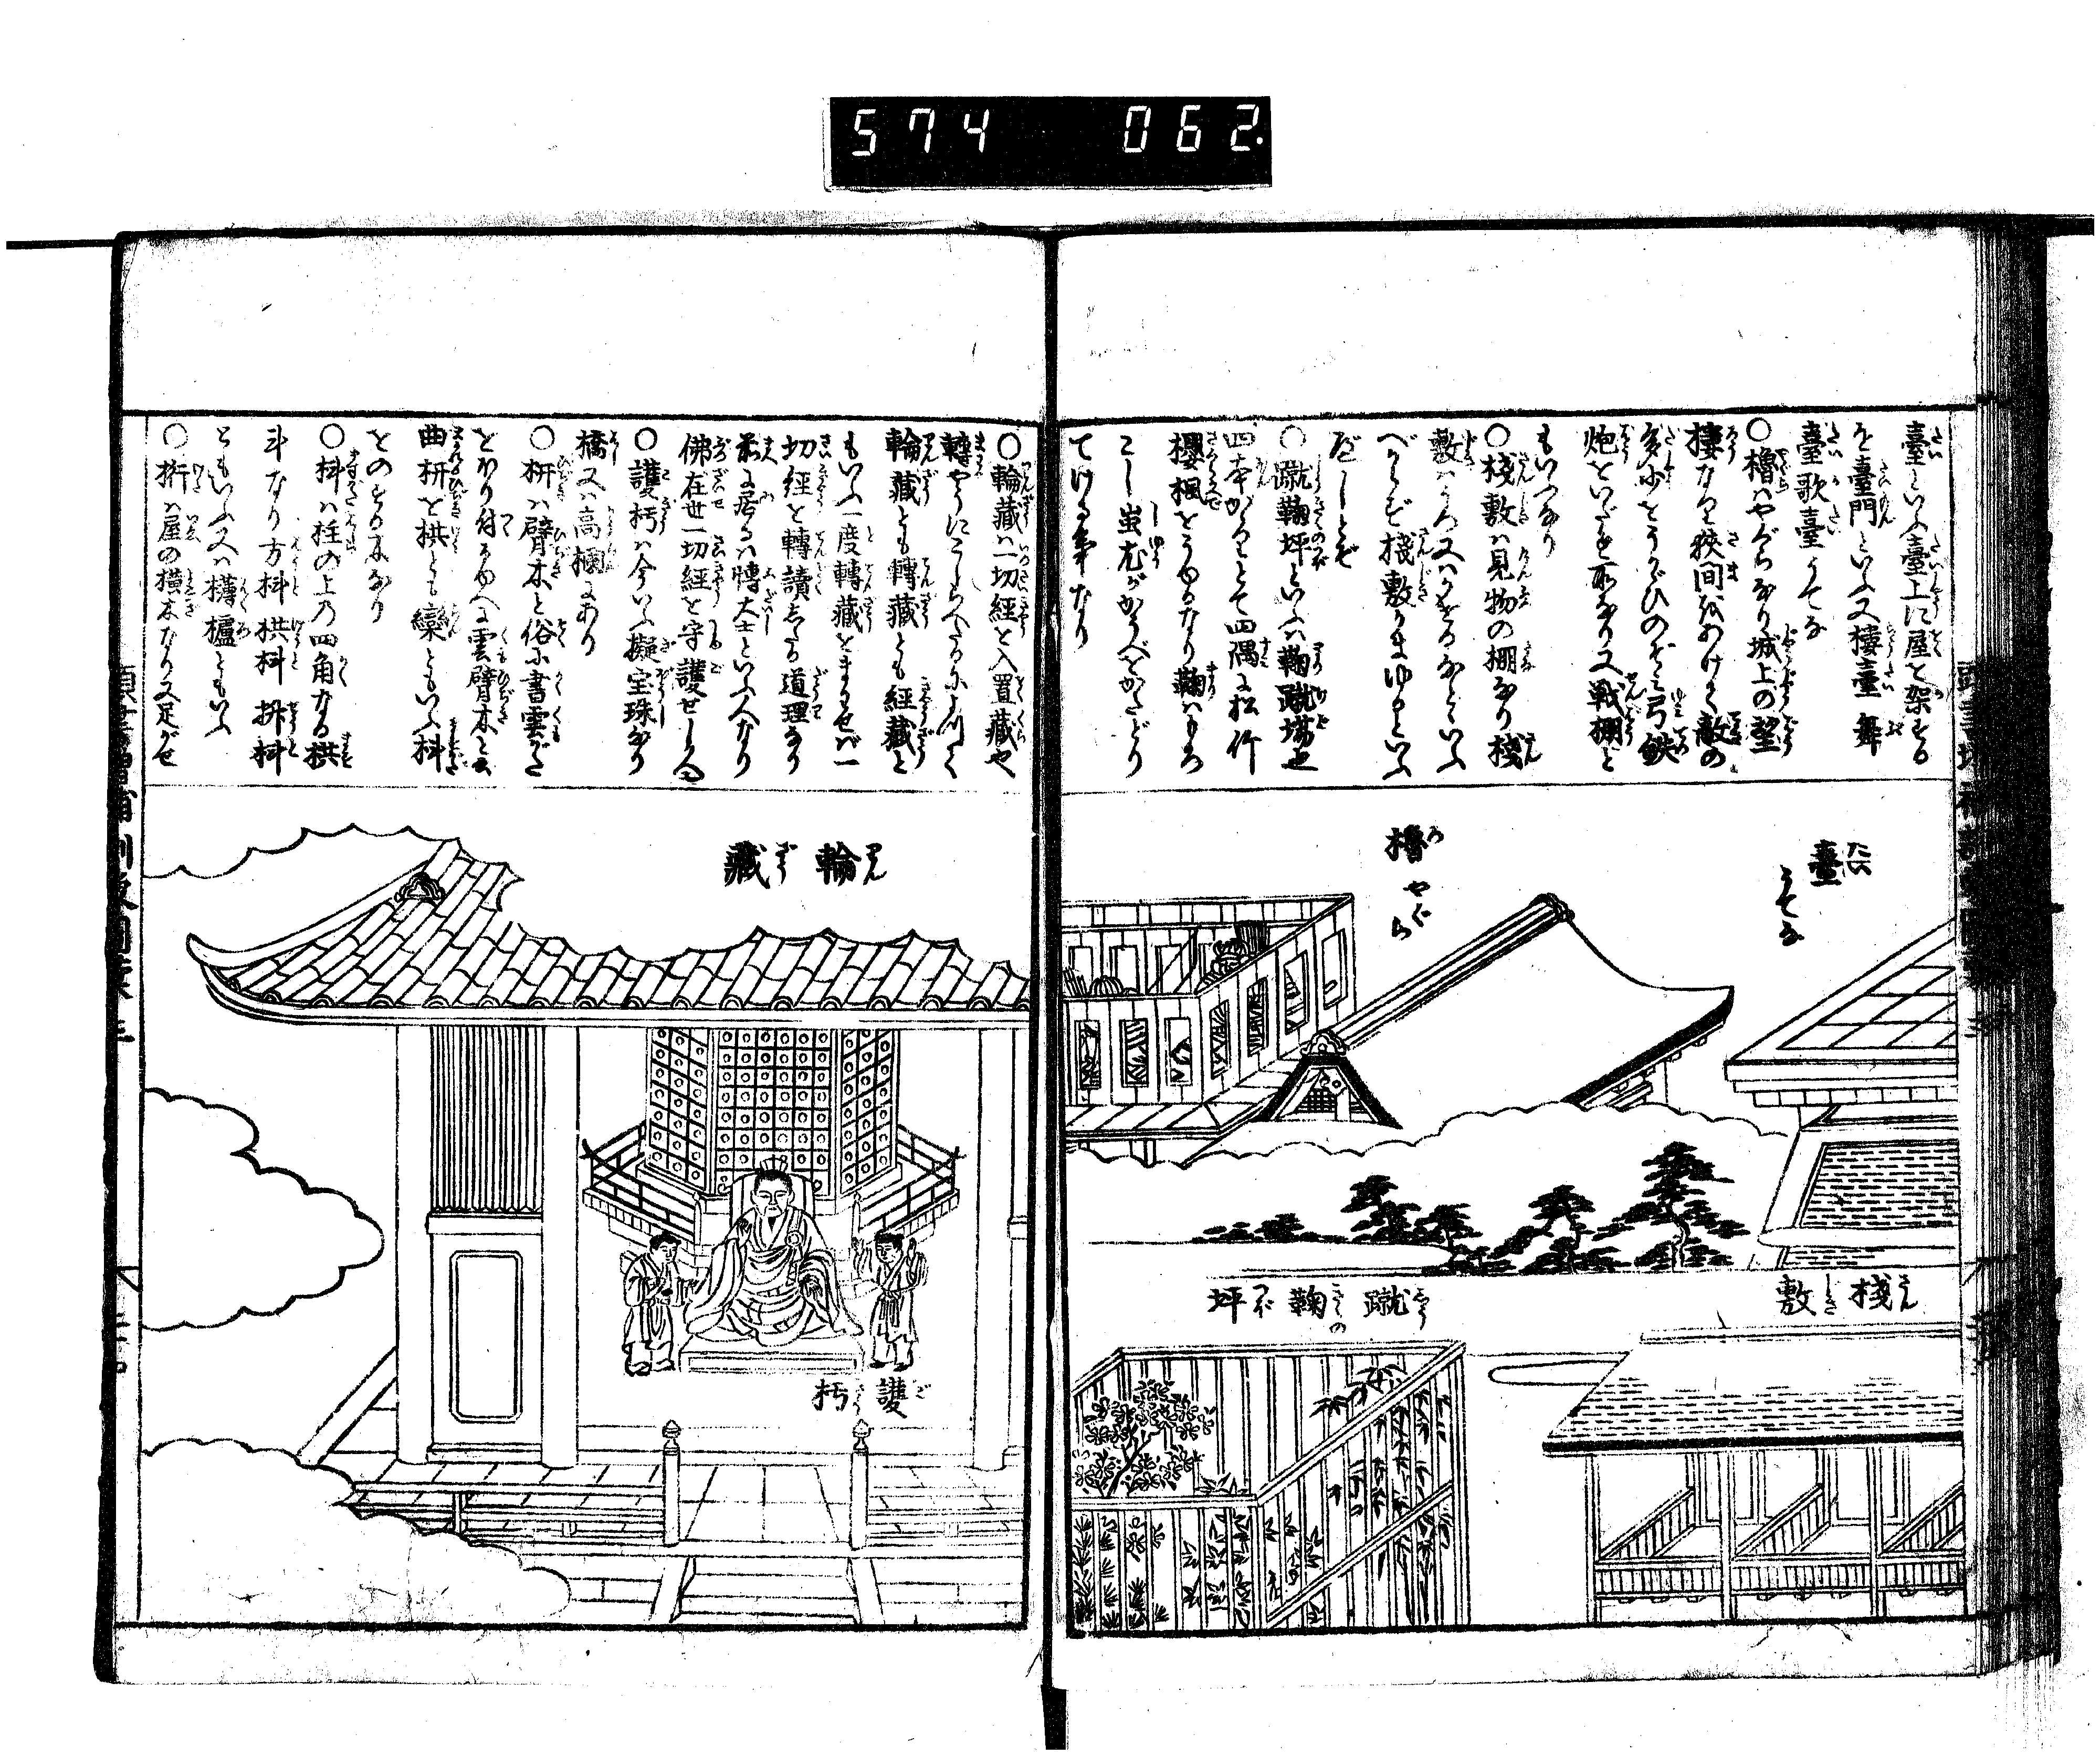 574 062.
臺といふ臺上に屋を架する
を臺門といふ又樓臺舞
臺歌臺うてな
○櫓ハやぐらなり城上の望
樓なり狹間をあけて敵の
多少をうかゞひのぞミ弓鉄
炮をいだす所なり又戦棚と
もいふなり
○桟敷ハ見物の棚なり桟
敷ハ
べからず桟敷
○蹴鞠坪といふハ鞠蹴場也
四本がゝりとて四隅に松竹
櫻楓をうゆるなり鞠ハ
てける事なり
○輪藏ハ一切經を入置藏也
轉やうにこしらへたるによつて
輪藏とも轉藏とも経藏と
もいふ一度轉藏をまわせバ一
切經を轉讀したる道理なり
前に居るハ傅大士といふ人なり
佛在世一切經を守護せしゆへ
○護朽ハ今いふ擬宝珠なり
橋又ハ高欄にあり
○枅ハ臂木と俗に書雲がた
をほり付るゆへに雲臂木と云
曲枅を栱とも欒ともいふ枓
をのするなり
○枓ハ柱の上の四角なる栱
斗なり方枓栱枓枡枓
ともいふ又ハ欂櫨ともいふ
○桁ハ屋の横木なり又足がせ
臺 たい うてな
櫓 ろ やぐら
桟敷 さんじき
蹴鞠坪 しうきくのつぼ
輪藏 りんざう
護朽 ごきう